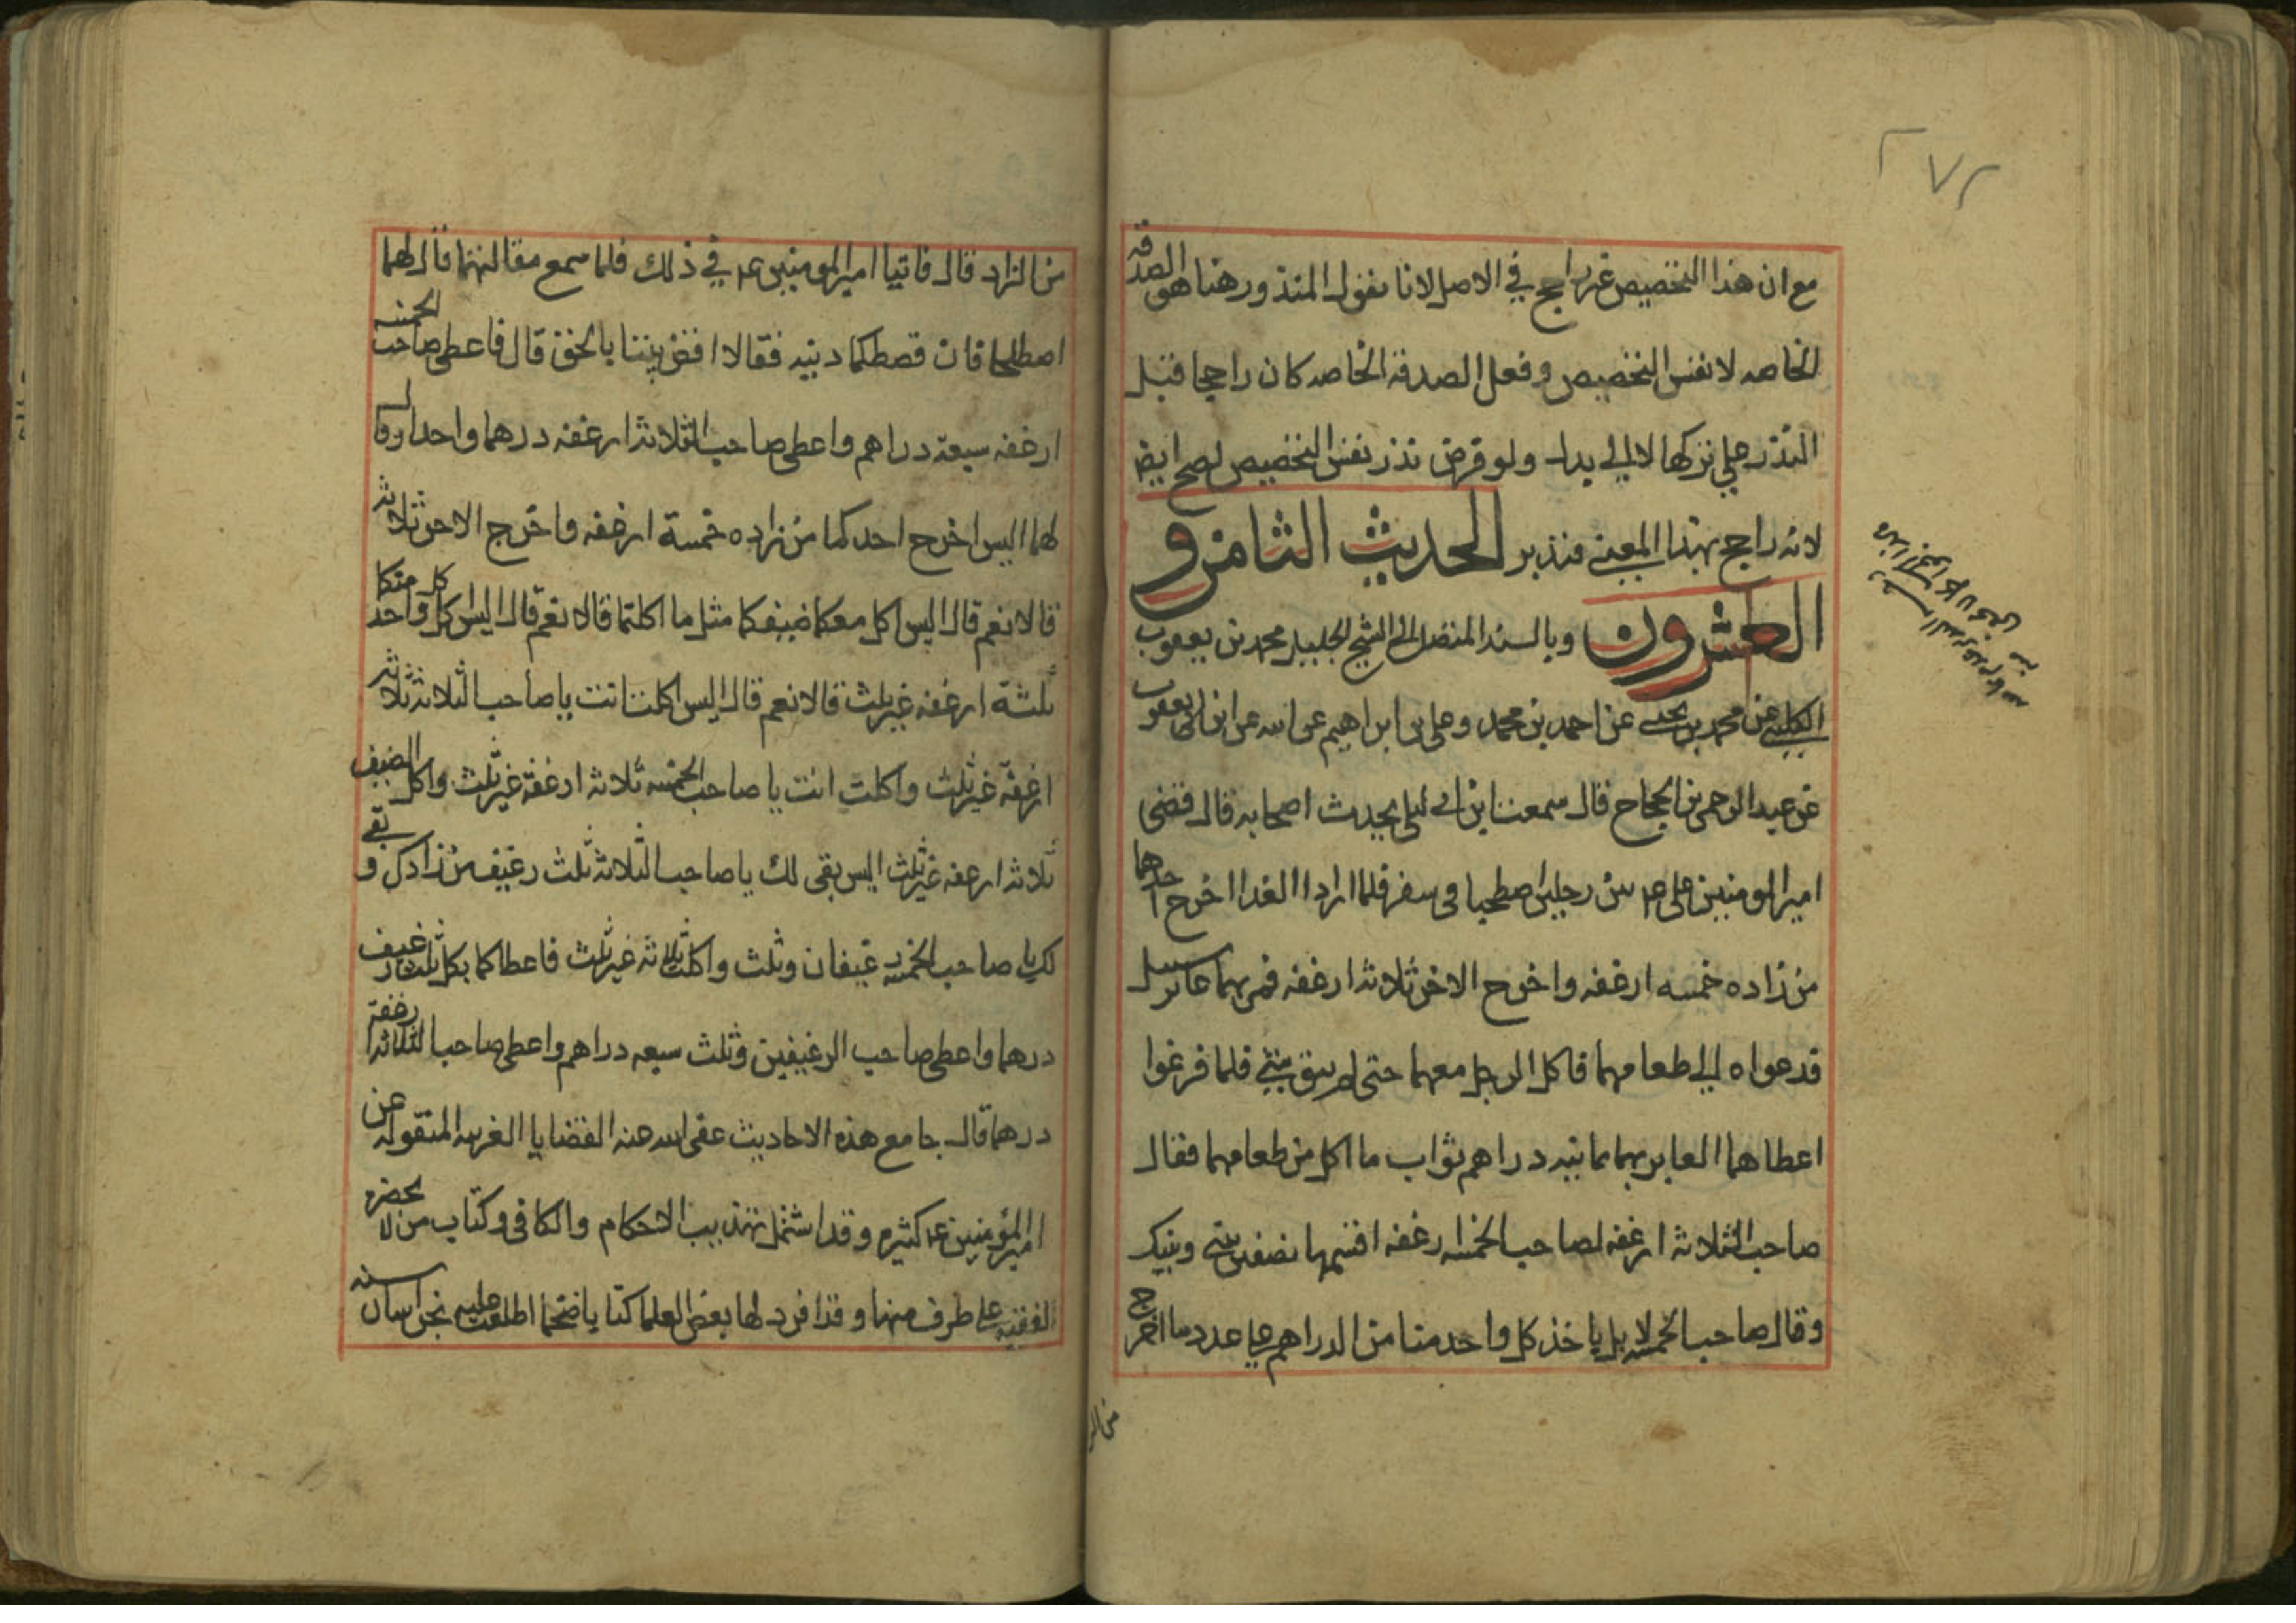 ٢٧٢
مع ان هذا التخصيص غير راجح في الاصل لانا نقول المنذور هنا هو الصدقه
الخاصه لا نفس التخصيص وفعل الصدقة الخاصه كان راجحا قبل
النذر علي تركها لا الي بدل ولو فرض نذر نفس التخصيص لصح ايضا
لانه راجح بهذا المعني فتدبر الحديث الثامن و
العشرون وبالسند المتصل الى الشيخ الجليل محمد بن يعقوب
الكليني عن محمد بن يحيى عن احمد بن محمد وعلى بن ابراهيم عن ابيه عن ابن ابى يعقوب
عن عبد الرحمن بن الحجاج قال سمعت ابن ابي ليلى يحدث اصحابه قال قضى
امير المومنين على ع بين رجلين اصطحبا فى سفر فلما ارادا الغدا اخرج احدهما
من زاده خمسه ارغفه واخرج الاخر ثلاثه ارغفه فمر بهما عابر سبيل
فدعواه الي طعامهما فاكل الرجل معهما حتى لم يبق شئ فلما فرغوا
اعطاهما العابر بهما ثمانيه دراهم ثواب ما اكل من طعامهما فقال
صاحب الثلاثه ارغفه لصاحب الخمسه ارغفه اقسمها نصفين بيني وبينك
وقال صاحب الخمسه لا بل ياخذ كل واحد منا من الدراهم علي عدد ما اخرج
من الز
من الزاد قال فاتيا امير المومنين ع في ذلك فلما سمع مقالتهما قال لهما
اصطلحا فان قصتكما دنيه فقالا اقض بيننا بالحق قال فاعطى صاحب الخمسه
ارغفه سبعة دراهم واعطى صاحب الثلاثه ارغفه درهما واحدا وقال
لهما اليس اخرج احدكما من زاده خمسة ارغفه واخرج الاخر ثلاثه
قالا نعم قال اليس اكل معكما ضيفكما مثل ما اكلتما قالا نعم قال اليس اكل كل واحد منكما
ثلثة ارغفه غير ثلث قالا نعم قال اليس اكلت انت يا صاحب الثلاثه ثلاثه
ارغفة غير ثلث واكلت انت يا صاحب الخمسه ثلاثه ارغفة غير ثلث واكل الضيف
ثلاثه ارغفه غير ثلث اليس بقى لك يا صاحب الثلاثه ثلث رغيف من زادك و بقي
لك يا صاحب الخمسه رغيفان وثلث واكلت ثلاثه غير ثلث فاعطاكما بكل ثلث رغيف
درهما واعطى صاحب الرغيفين وثلث سبعه دراهم واعطى صاحب الثلاثه ارغفة
درهما قال جامع هذه الاحاديث عفى الله عنه القضايا الغريبه المنقوله عن
امير المؤمنين ع كثيره وقد اشتمل تهذيب الاحكام والكافى وكتاب من لا يحضره
الفقيه على طرف منها وقد افرد لها بعض العلما كتابا ضخما اطلعت عليه بخراسان سنه